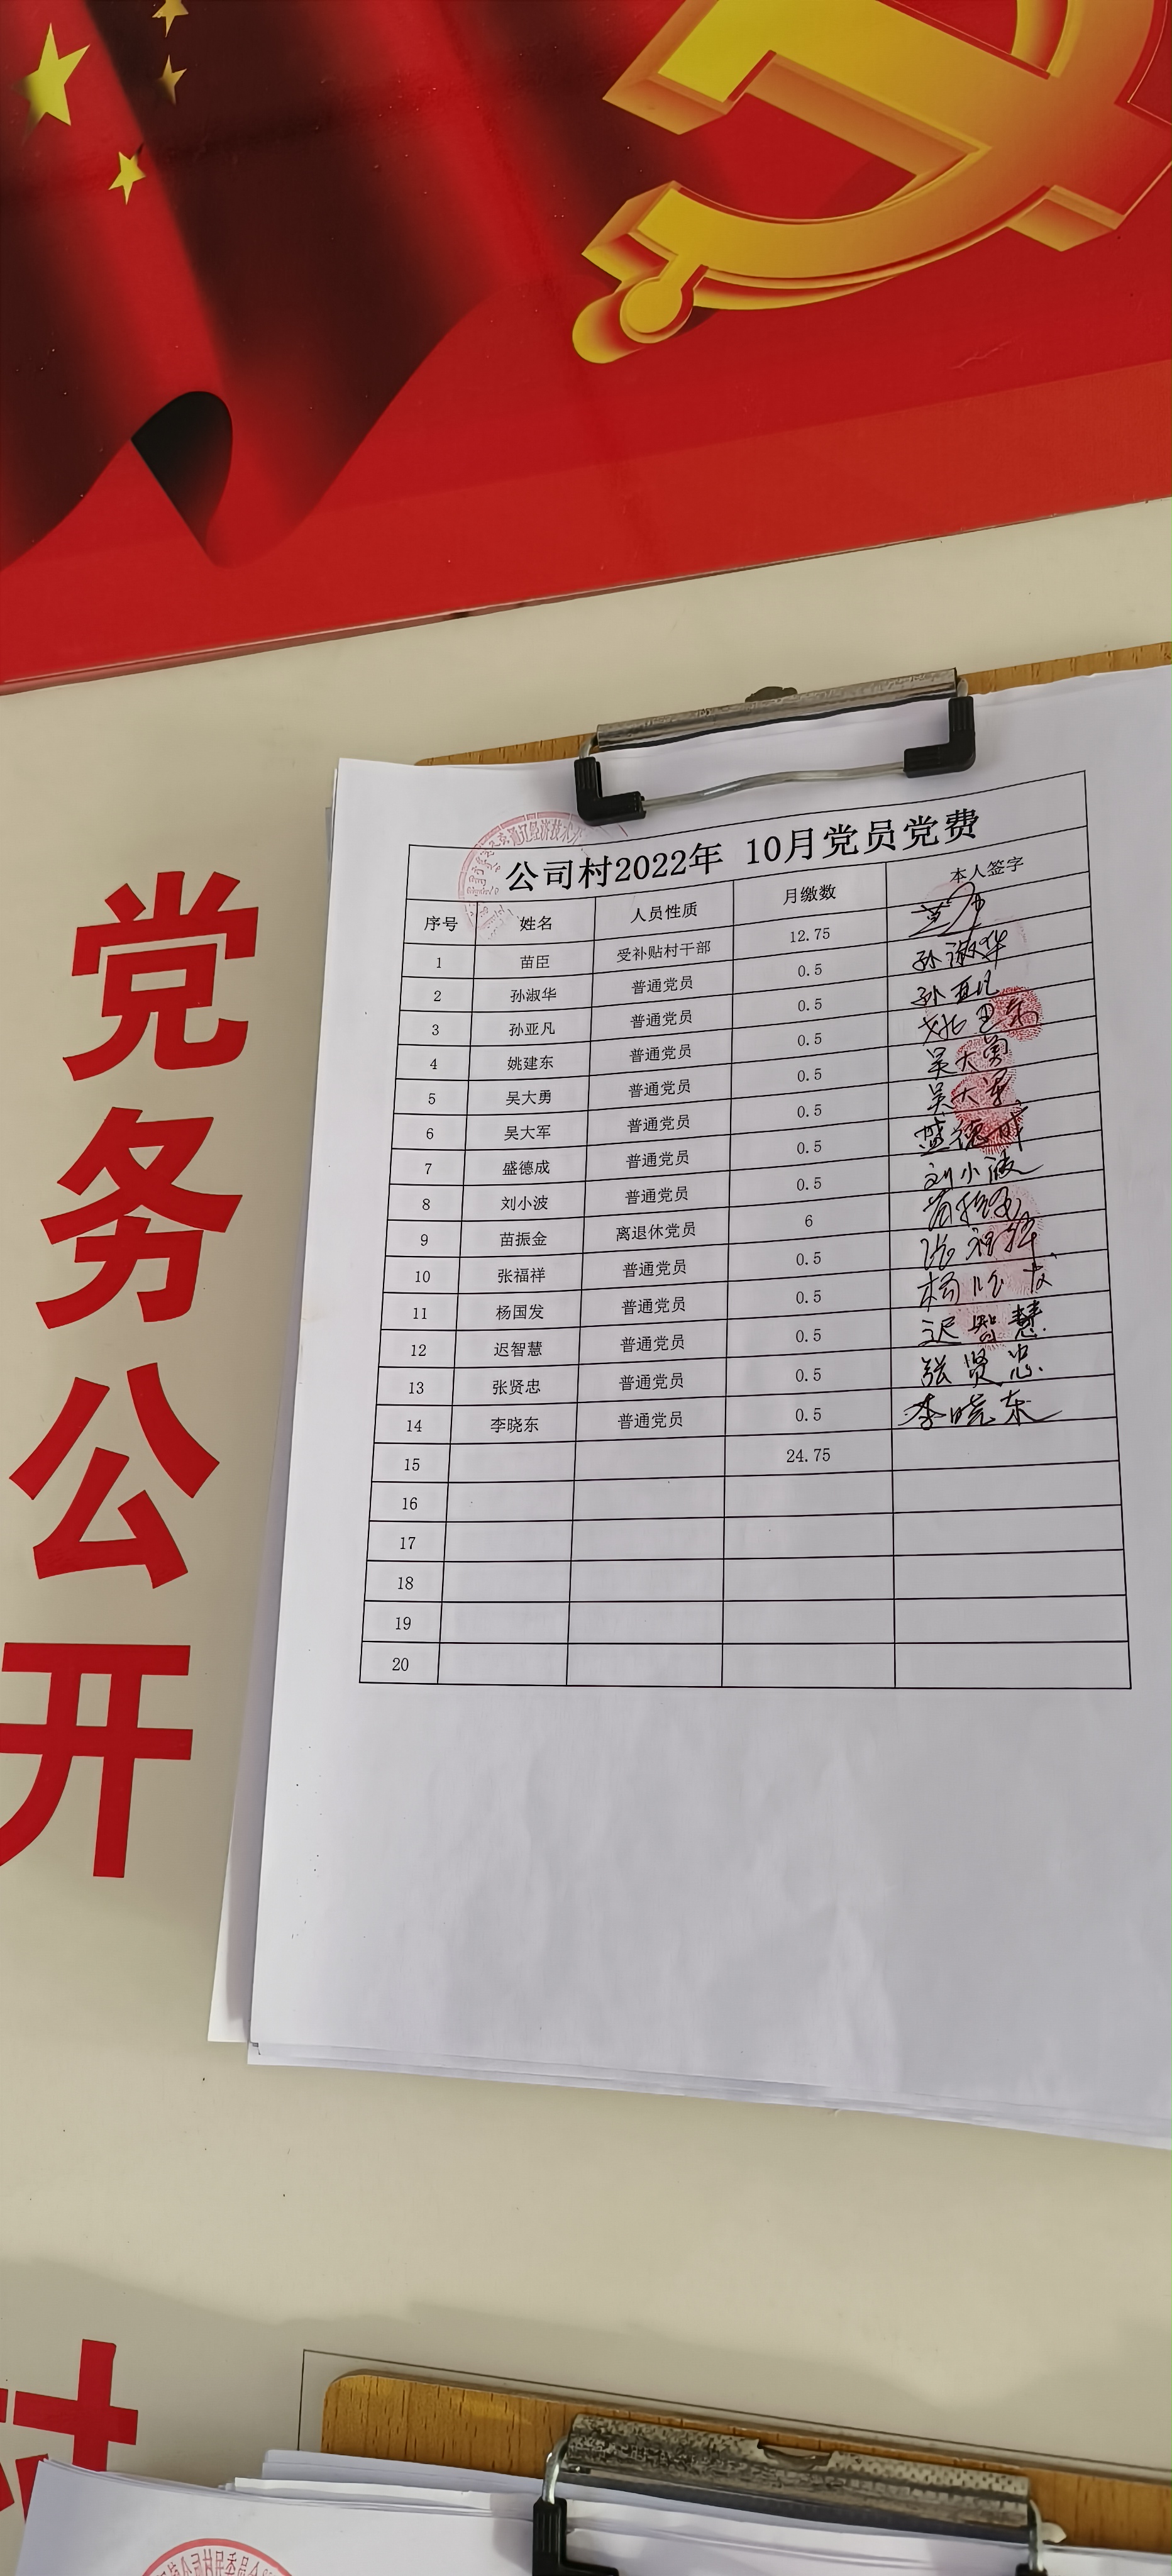 公司村2022年 10月党员党费
序号 姓名 人员性质 月缴数 本人签字
1 苗臣 受补贴村干部 12.75
2 孙淑华 普通党员 0.5 孙淑华
3 孙亚凡 普通党员 0.5 孙亚凡
4 姚建东 普通党员 0.5
5 吴大勇 普通党员 0.5 吴大勇
6 吴大军 普通党员 0.5 吴大军
7 盛德成 普通党员 0.5 盛德成
8 刘小波 普通党员 0.5 刘小波
9 苗振金 离退休党员 6
10 张福祥 普通党员 0.5 张福祥
11 杨国发 普通党员 0.5 杨国发
12 迟智慧 普通党员 0.5 迟智慧
13 张贤忠 普通党员 0.5 张贤忠
14 李晓东 普通党员 0.5 李晓东
15 24.75
16
17
18
19
20
党
务
公
开
村
公司村村民委员会